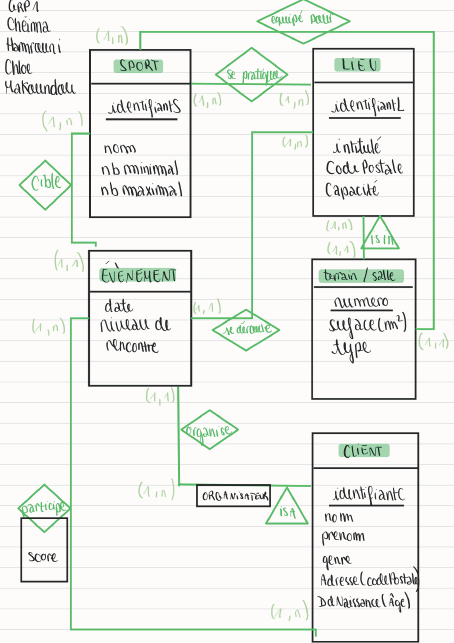 GRP1
Cheima
Hamraoui
Chloe
Makaundau
(1,n)
équipé pour
SPORT
identifiantS
nom
nb minimal
nb maximal
se pratique
(1,n)
(1,n)
LIEU
identifiantL
intitulé
Code Postale
Capacité
(1,n)
(1,n)
Cible
(1,1)
(1,n)
(1,1)
is in
ÉVÈNEMENT
date
niveau de
rencontre
(1,1)
se déroule
terrain / salle
numero
surface (m²)
type
(1,1)
(1,n)
(1,1)
organise
(1,n)
ORGANISATEUR
isA
CLIENT
identifiantC
nom
prenom
genre
Adresse (codePostale)
DdNaissance (Âge)
participe
score
(1,n)